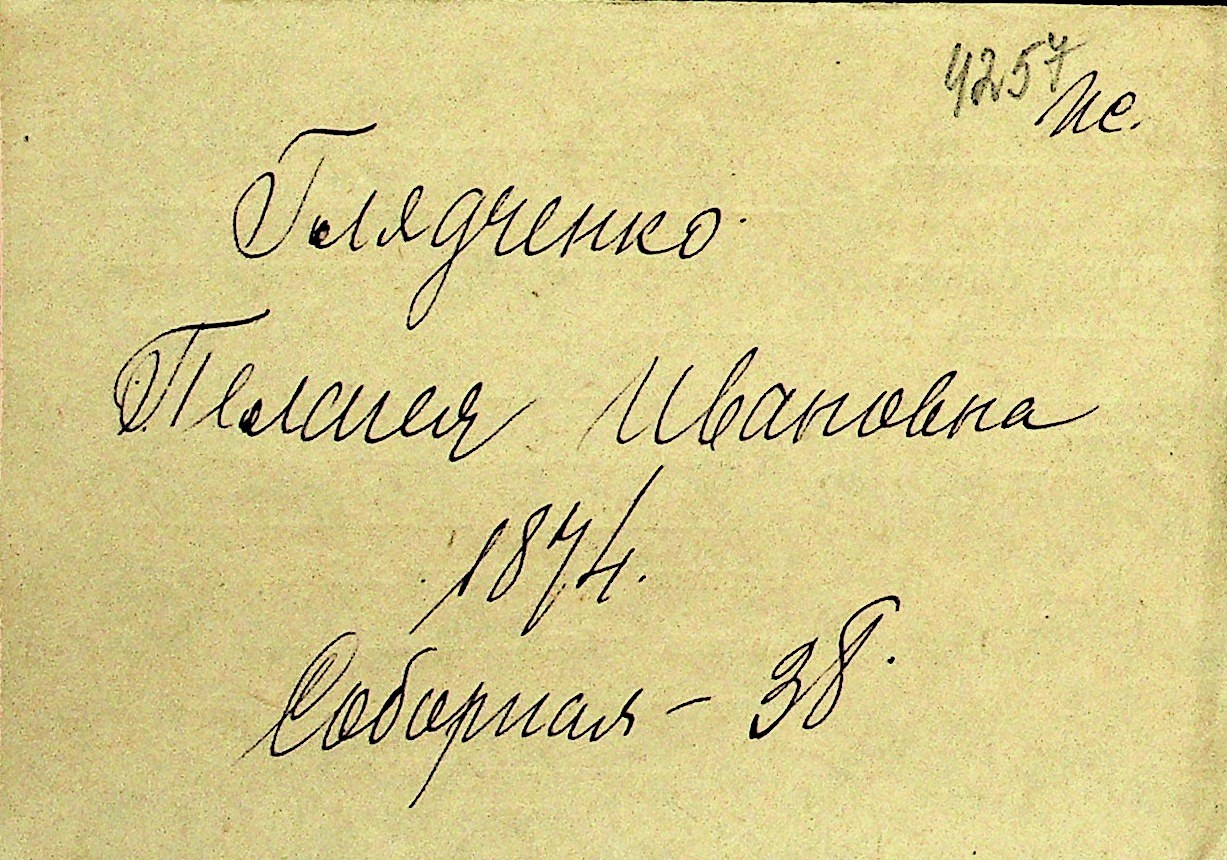 4257
Ис.
Глядченко
Пелагея Ивановна
1874.
Соборная – 38.